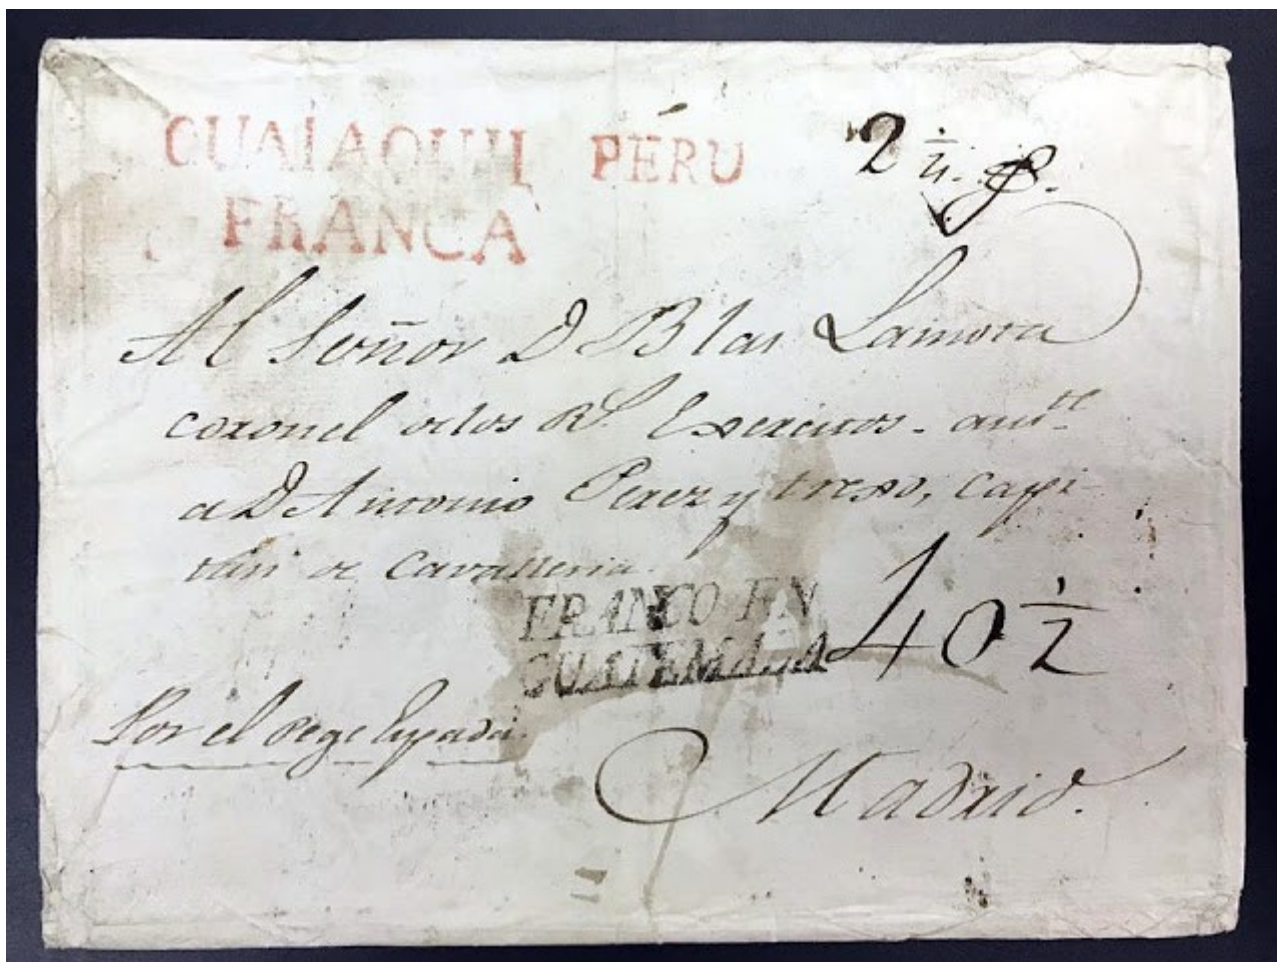 GUAIAQUIL PERU
FRANCA
2 ½
Al Señor D Blas Lamora
coronel de los Rs. Exercitos. autte
a D Antonio Perez y trexo, capi
tan de Cavalleria.
FRANCO EN
GUATEMALA
40 ½
Por el
Madrid.